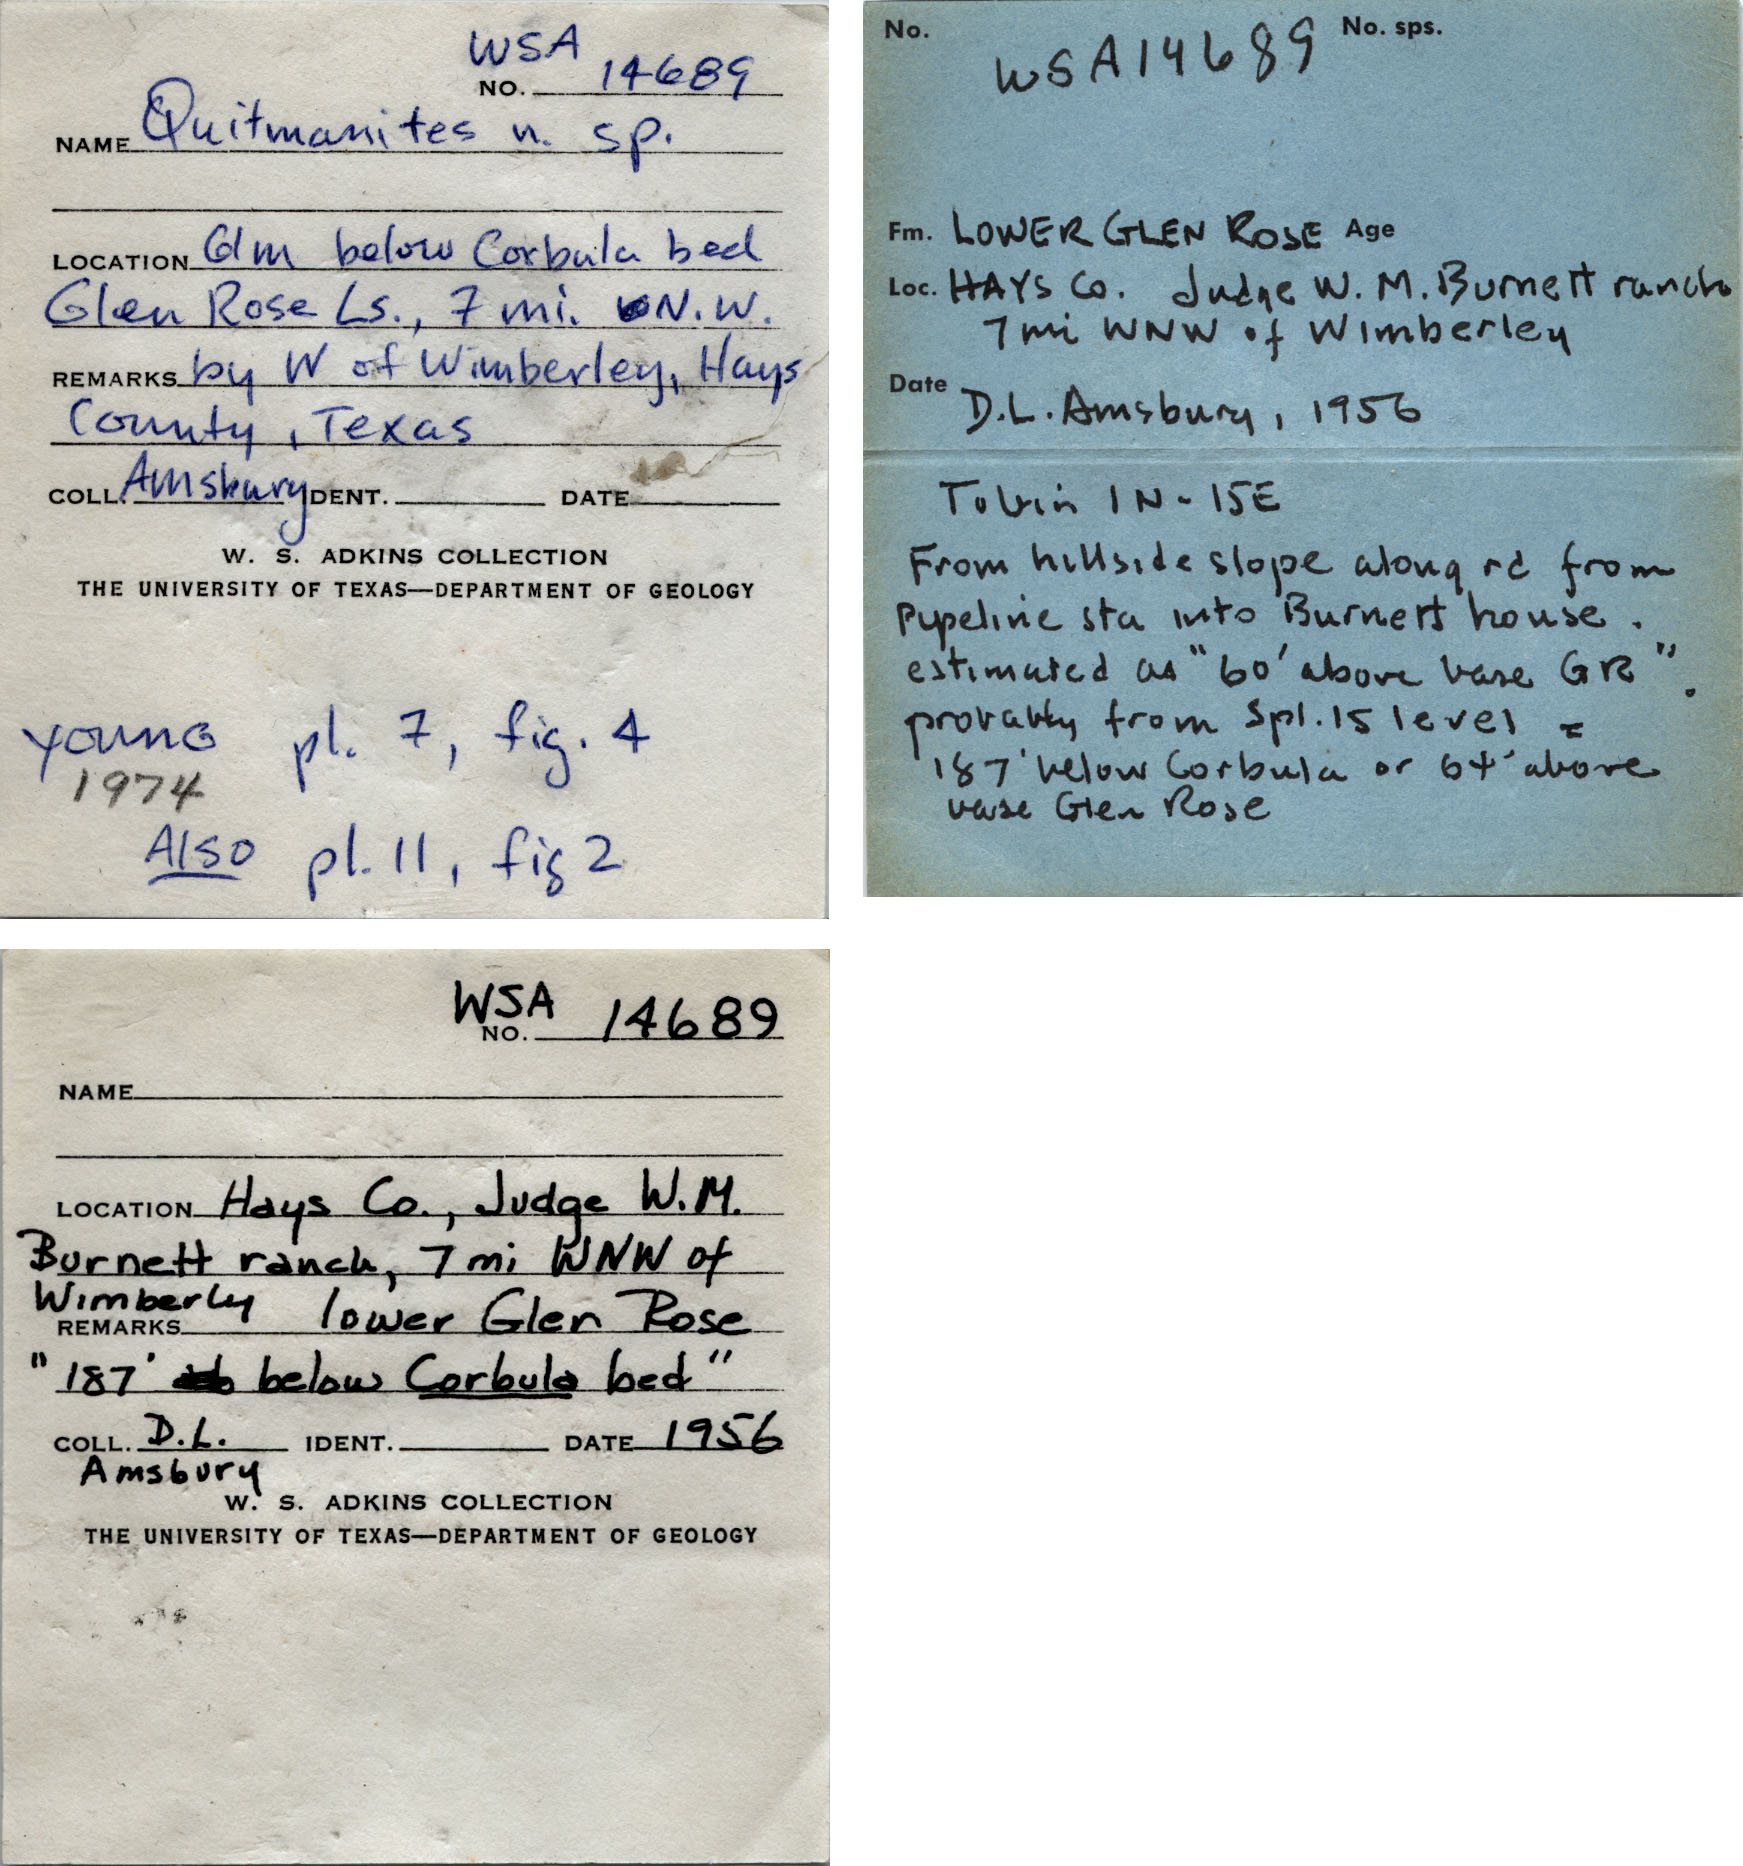 WSA
NO. 14689
NAME Quitmanites n. sp.
LOCATION 61m below Corbula bed
Glen Rose Ls., 7 mi. N.W.
REMARKS by W of Wimberley, Hays
County, Texas
COLL. Amsbury IDENT. DATE
W. S. ADKINS COLLECTION
THE UNIVERSITY OF TEXAS—DEPARTMENT OF GEOLOGY
YOUNG pl. 7, fig. 4
1974
Also pl. 11, fig 2
No. WSA14689 No. sps.
Fm. LOWER GLEN ROSE Age
Loc. HAYS Co. Judge W. M. Burnett ranch
7mi WNW of Wimberley
Date D.L. Amsbury, 1956
Tobin 1N-15E
From hillside slope along rd from
pypeline sta into Burnett house.
estimated as "60' above base GR".
probably from Spl. 15 level =
187' below Corbula or 64' above
base Glen Rose
WSA
NO. 14689
NAME
LOCATION Hays Co., Judge W.M.
Burnett ranch, 7 mi WNW of
Wimberly
REMARKS lower Glen Rose
"187' below Corbula bed"
COLL. D.L. IDENT. DATE 1956
Amsbury
W. S. ADKINS COLLECTION
THE UNIVERSITY OF TEXAS—DEPARTMENT OF GEOLOGY